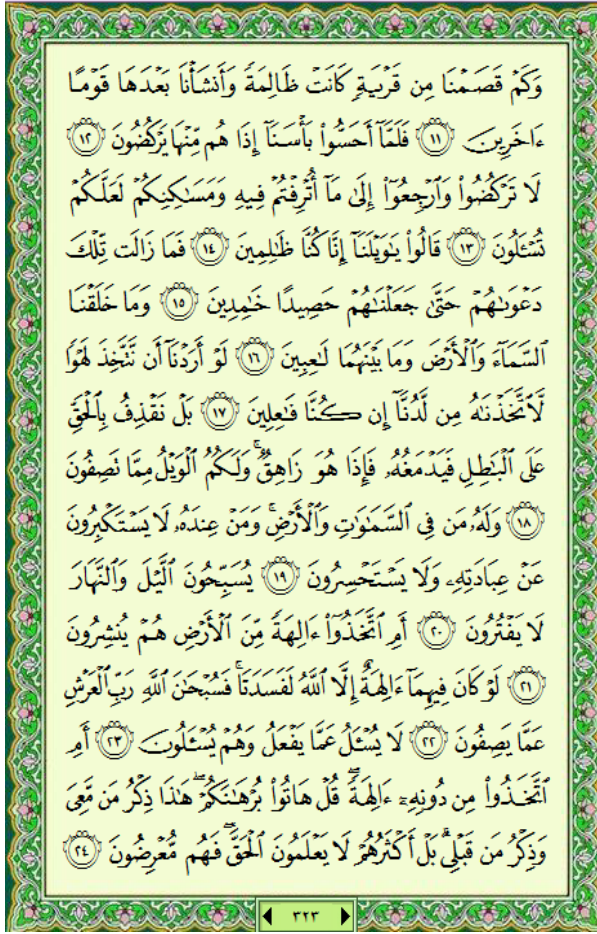 وَكَمْ قَصَمْنَا مِن قَرْيَةٍ كَانَتْ ظَالِمَةً وَأَنشَأْنَا بَعْدَهَا قَوْمًا
ءَاخَرِينَ ﴿١١﴾ فَلَمَّآ أَحَسُّوا۟ بَأْسَنَآ إِذَا هُم مِّنْهَا يَرْكُضُونَ ﴿١٢﴾
لَا تَرْكُضُوا۟ وَٱرْجِعُوٓا۟ إِلَىٰ مَآ أُتْرِفْتُمْ فِيهِ وَمَسَـٰكِنِكُمْ لَعَلَّكُمْ
تُسْـَٔلُونَ ﴿١٣﴾ قَالُوا۟ يَـٰوَيْلَنَآ إِنَّا كُنَّا ظَـٰلِمِينَ ﴿١٤﴾ فَمَا زَالَت تِّلْكَ
دَعْوَىٰهُمْ حَتَّىٰ جَعَلْنَـٰهُمْ حَصِيدًا خَـٰمِدِينَ ﴿١٥﴾ وَمَا خَلَقْنَا
ٱلسَّمَآءَ وَٱلْأَرْضَ وَمَا بَيْنَهُمَا لَـٰعِبِينَ ﴿١٦﴾ لَوْ أَرَدْنَآ أَن نَّتَّخِذَ لَهْوًا
لَّٱتَّخَذْنَـٰهُ مِن لَّدُنَّآ إِن كُنَّا فَـٰعِلِينَ ﴿١٧﴾ بَلْ نَقْذِفُ بِٱلْحَقِّ
عَلَى ٱلْبَـٰطِلِ فَيَدْمَغُهُۥ فَإِذَا هُوَ زَاهِقٌ ۚ وَلَكُمُ ٱلْوَيْلُ مِمَّا تَصِفُونَ
﴿١٨﴾ وَلَهُۥ مَن فِى ٱلسَّمَـٰوَٰتِ وَٱلْأَرْضِ ۚ وَمَنْ عِندَهُۥ لَا يَسْتَكْبِرُونَ
عَنْ عِبَادَتِهِۦ وَلَا يَسْتَحْسِرُونَ ﴿١٩﴾ يُسَبِّحُونَ ٱلَّيْلَ وَٱلنَّهَارَ
لَا يَفْتُرُونَ ﴿٢٠﴾ أَمِ ٱتَّخَذُوٓا۟ ءَالِهَةً مِّنَ ٱلْأَرْضِ هُمْ يُنشِرُونَ
﴿٢١﴾ لَوْ كَانَ فِيهِمَآ ءَالِهَةٌ إِلَّا ٱللَّهُ لَفَسَدَتَا ۚ فَسُبْحَـٰنَ ٱللَّهِ رَبِّ ٱلْعَرْشِ
عَمَّا يَصِفُونَ ﴿٢٢﴾ لَا يُسْـَٔلُ عَمَّا يَفْعَلُ وَهُمْ يُسْـَٔلُونَ ﴿٢٣﴾ أَمِ
ٱتَّخَذُوا۟ مِن دُونِهِۦٓ ءَالِهَةً ۖ قُلْ هَاتُوا۟ بُرْهَـٰنَكُمْ ۖ هَـٰذَا ذِكْرُ مَن مَّعِىَ
وَذِكْرُ مَن قَبْلِى ۗ بَلْ أَكْثَرُهُمْ لَا يَعْلَمُونَ ٱلْحَقَّ ۖ فَهُم مُّعْرِضُونَ ﴿٢٤﴾
٣٢٣